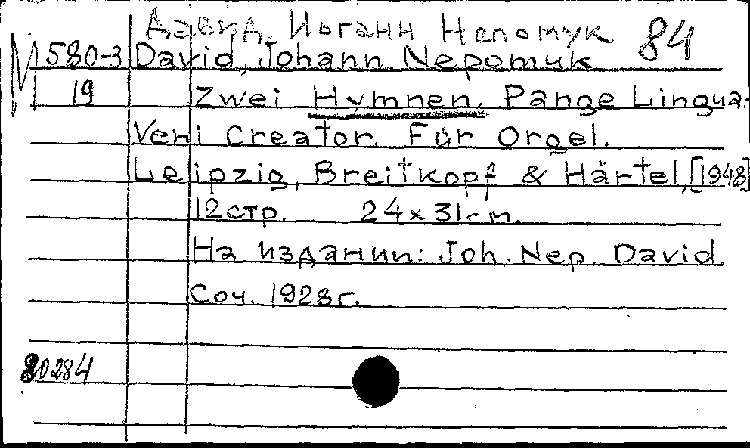 Давид, Иоганн Непомук 84
М 580-3 David, Johann Nepomuk
19 Zwei Hymnen. Pange Lingua.
Veni Creator. Für Orgel.
Leipzig, Breitkopf & Härtel, [1948]
12 стр. 24 x 31 cm.
На издании: Joh. Nep. David
Соч. 1928 г.
80284